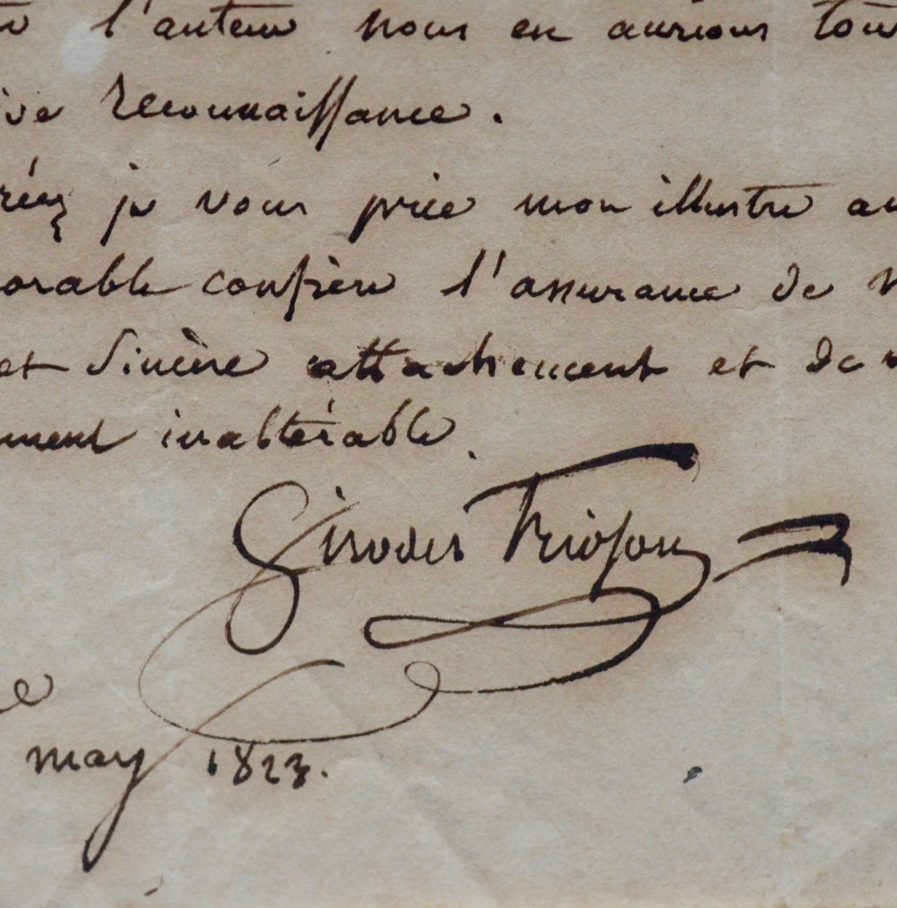 l'auteur nous en aurions tou
ive reconnaissance.
réez je vous prie mon illustre a
orable confrère l'assurance de
et sincère attachement et de
ment inaltérable.
Girodet Trioson
may 1823.